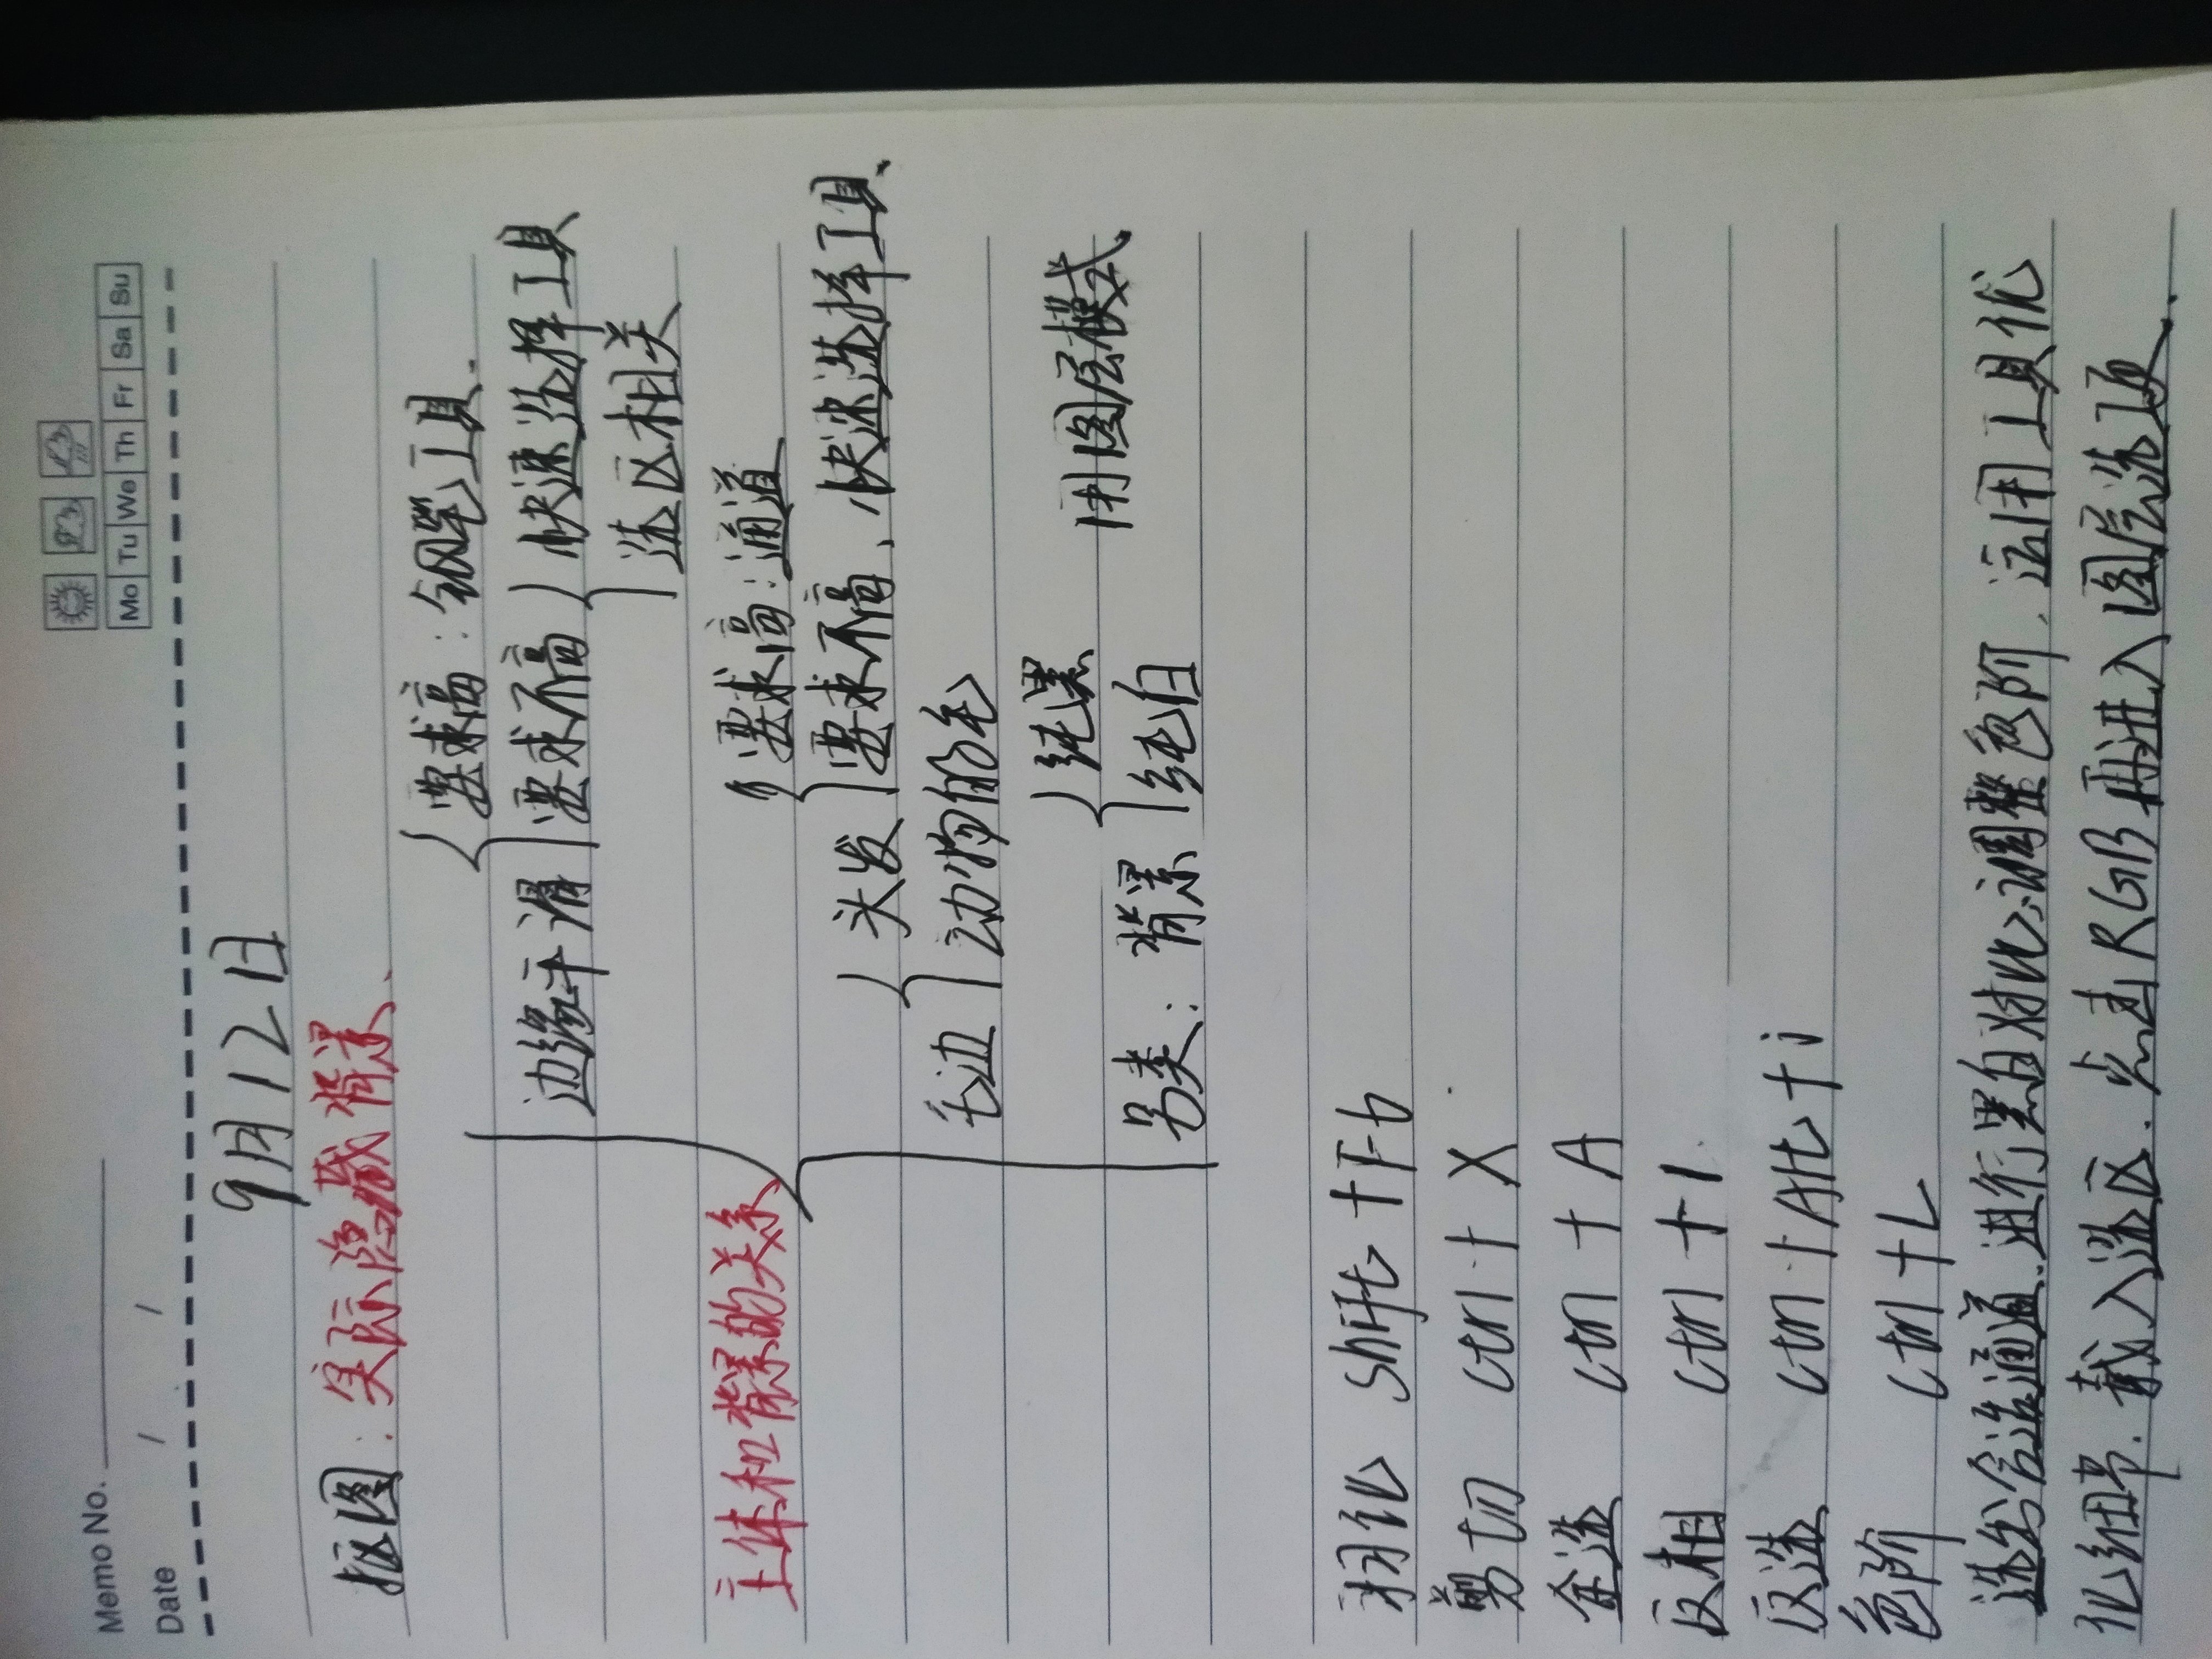 Memo No.
Mo Tu We Th Fr Sa Su
Date / /
9月12日
抠图：实际隐藏背景、
要求高：钢笔工具.
边缘平滑 要求不高 快速选择工具
选区相关
主体和背景的关系
要求高：通道
头发 要求不高、快速选择工具、
毛边 动物的毛
纯黑 用图层模式
另类：背景 纯白
羽化 Shift+F6
剪切 ctrl+X
全选 ctrl+A
反相 ctrl+I
反选 ctrl+Alt+i
色阶 ctrl+L
选出合适通道.进行黑白对比、调整色阶、运用工具优
化细节.载入选区.点击RGB再进入图层选项.